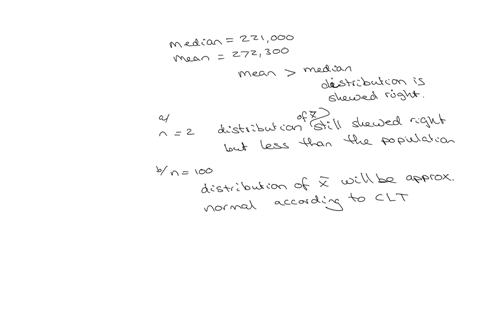 median = 221,000
mean = 272,300
mean > median
distribution is
skewed right.
a/
n = 2 distribution of x̄ still skewed right
but less than the population
b/ n = 100
distribution of x̄ will be approx.
normal according to CLT